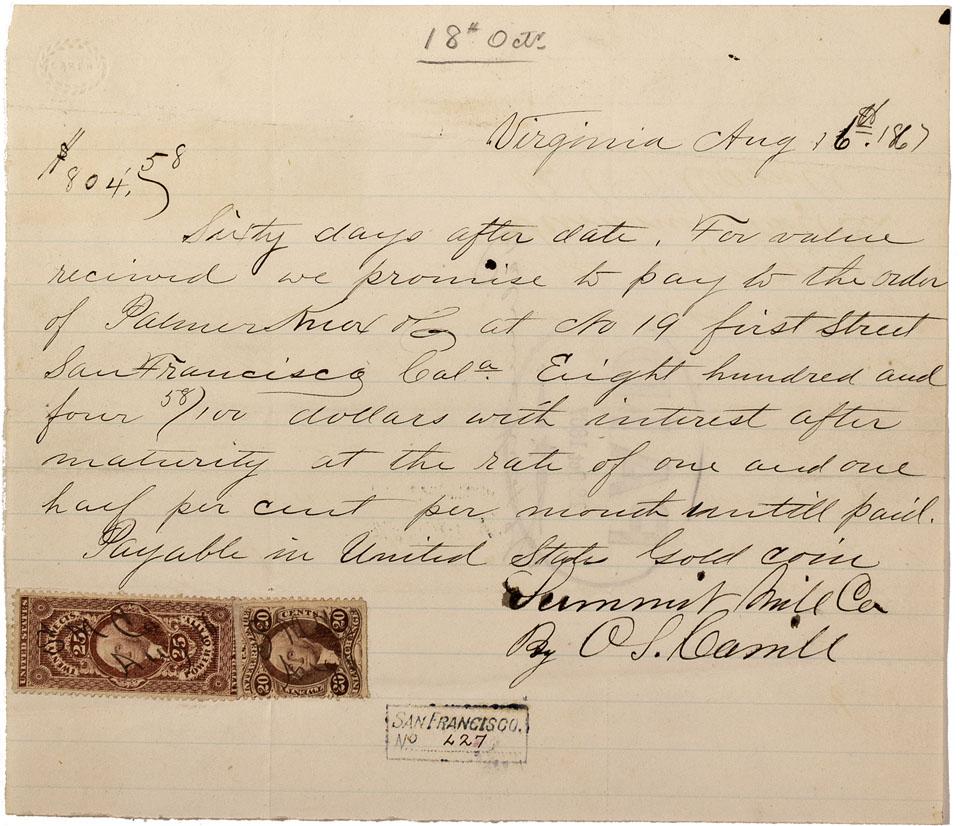 18th Octr
CARSON
Virginia Aug 16th 1867
$804,58
Sixty days after date. For value
recieved we promise to pay to the order
of Palmer Knox & Co at No 19 first Street
San Francisco Cala. Eeight hundred and
four 58/100 dollars with interest after
maturity at the rate of one and one
half per cent per month untill paid.
Payable in United States Gold coin
Summit Mill Co
By C. S. Carrill
UNITED STATES
25 25
20 CENTS 20
20 TWENTY 20
SAN FRANCISCO.
No 227